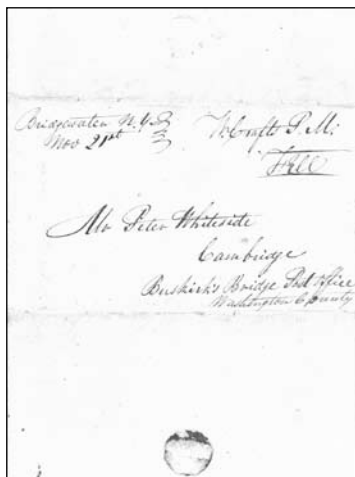 Bridgewater N.Y.
Nov 21st
W Crafts P. M.
Free
Mr Peter Whiteside
Cambridge
Buskirk's Bridge Post Office
Washington County